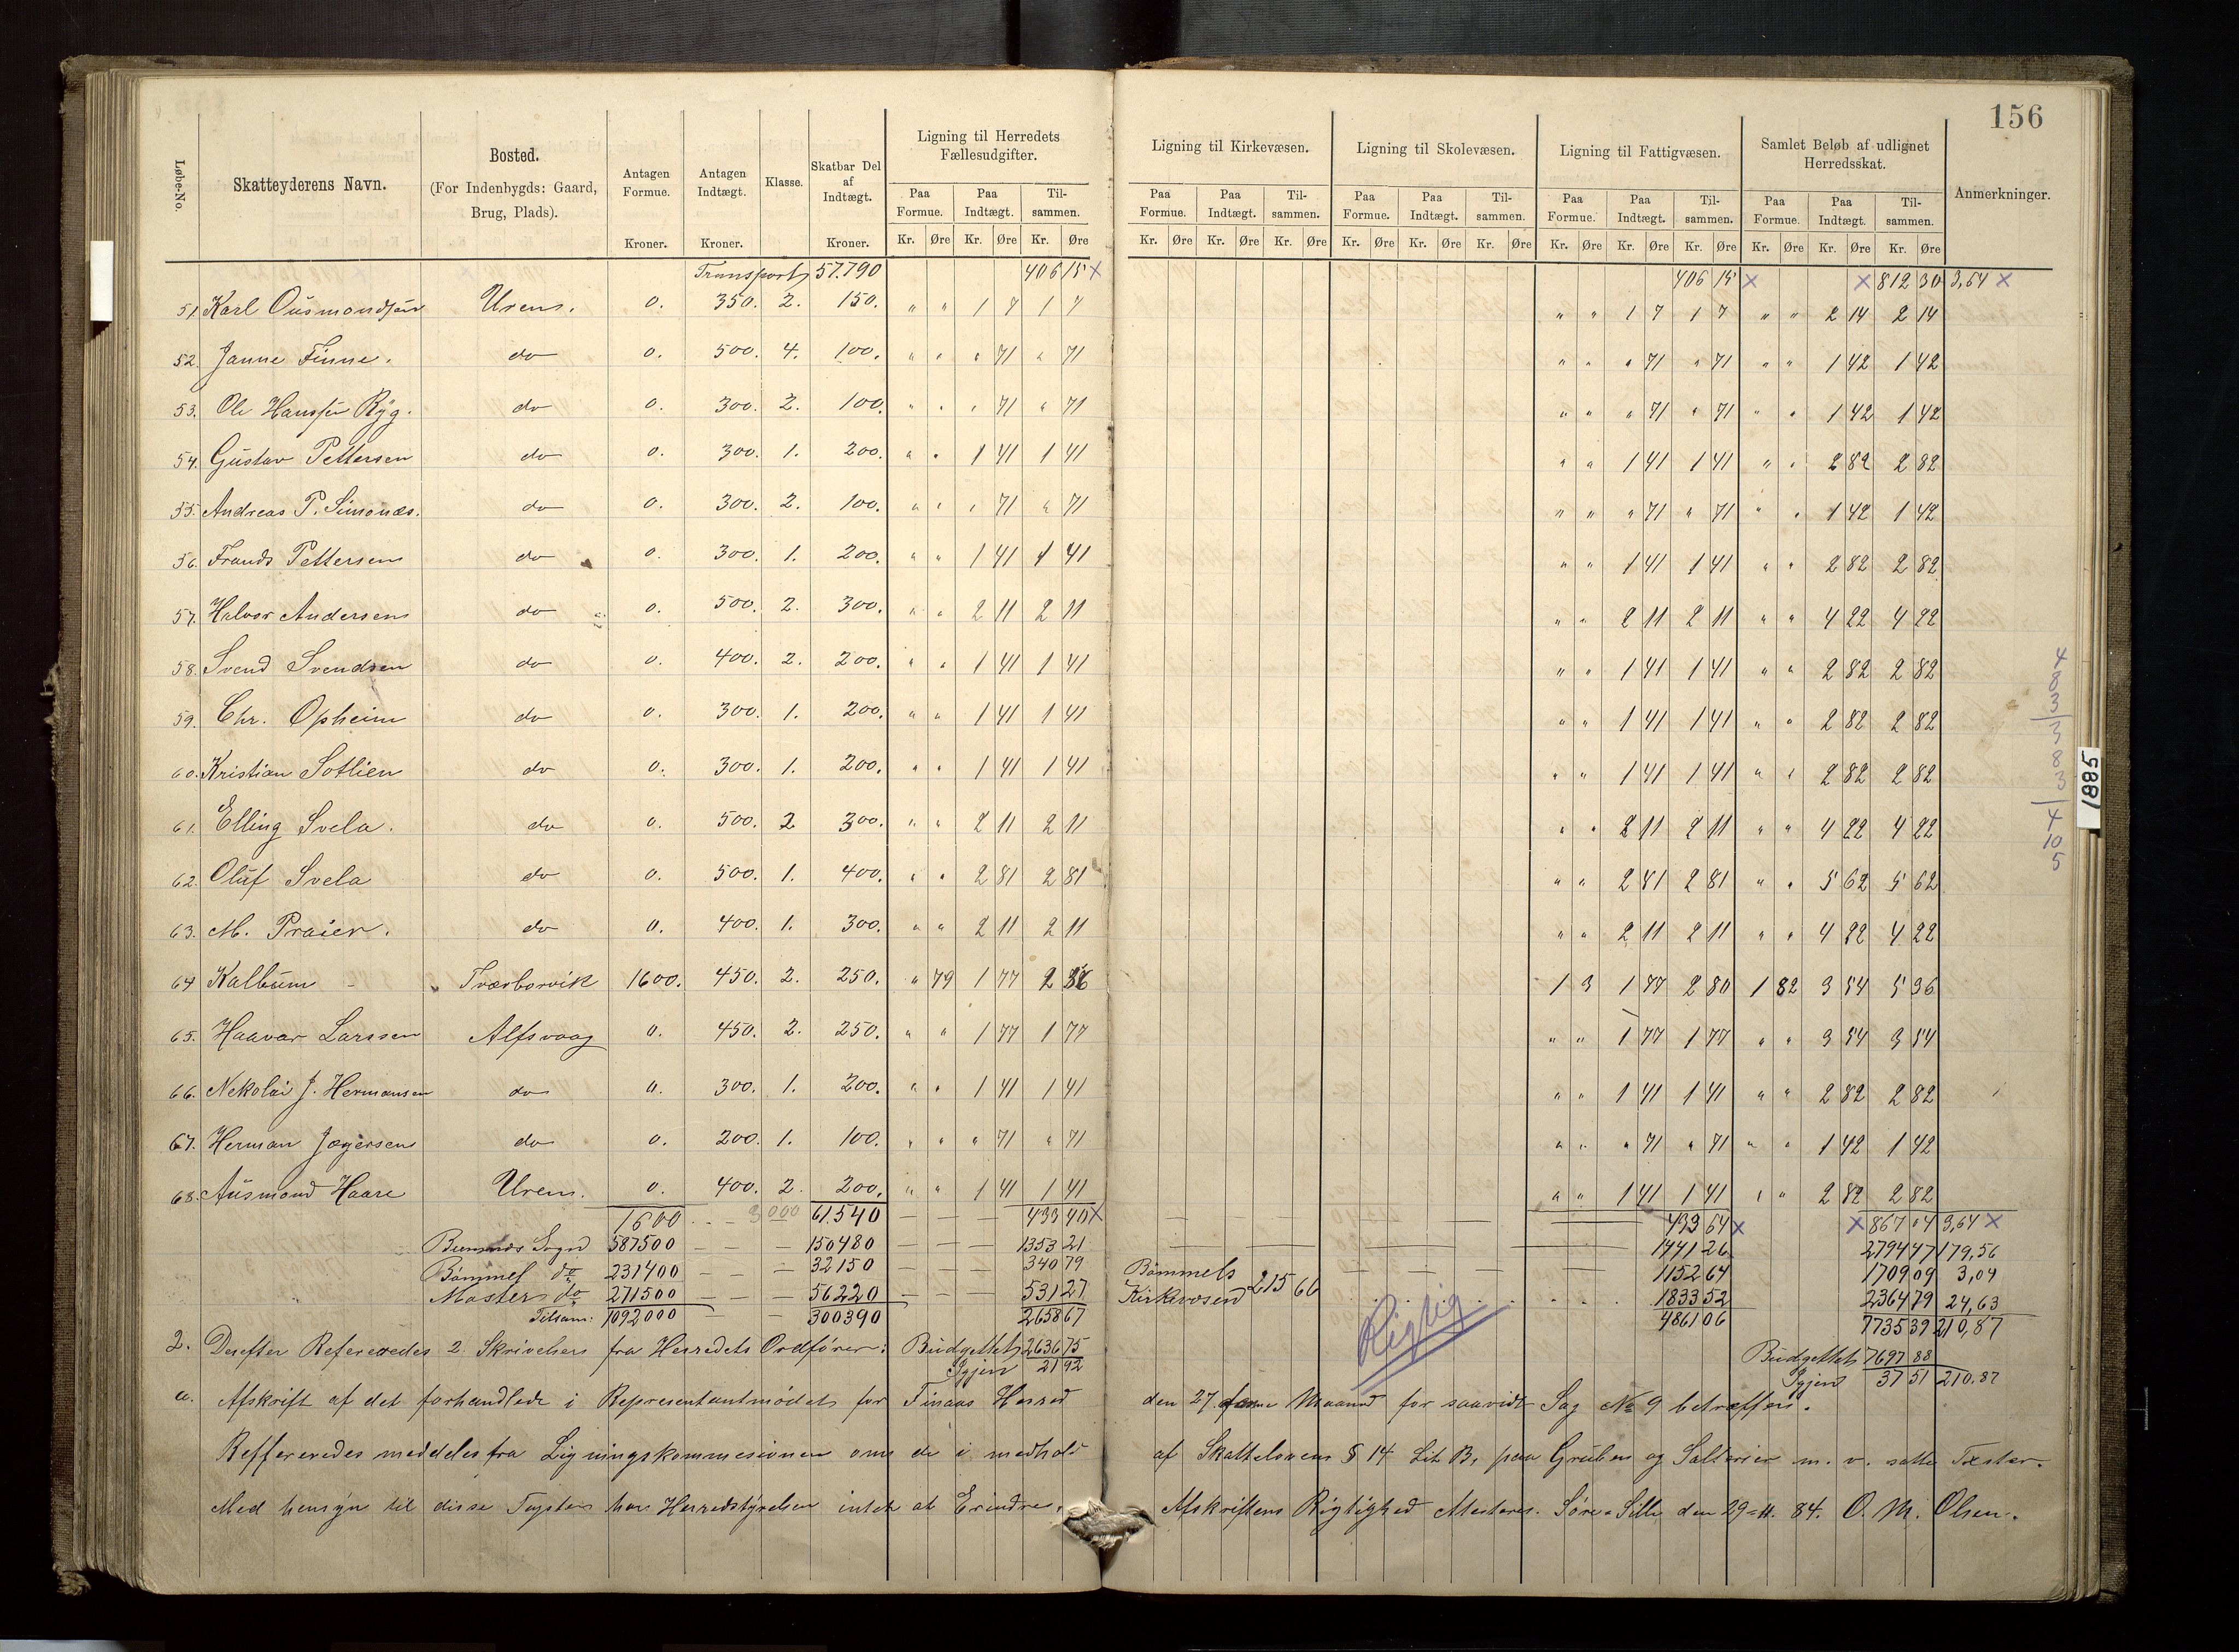 156
Løbe-No. Skatteyderens Navn. Bosted. (For Indenbygds: Gaard, Brug, Plads). Antagen Formue. Kroner. Antagen Indtægt. Kroner. Klasse. Skatbar Del af Indtægt. Kroner. Ligning til Herredets Fællesudgifter. Ligning til Kirkevæsen. Ligning til Skolevæsen. Ligning til Fattigvæsen. Samlet Beløb af udlignet Herredsskat. Anmerkninger.
Paa Formue. Paa Indtægt. Tilsammen. Paa Formue. Paa Indtægt. Tilsammen. Paa Formue. Paa Indtægt. Tilsammen. Paa Formue. Paa Indtægt. Tilsammen. Paa Formue. Paa Indtægt. Tilsammen.
Kr. Øre Kr. Øre Kr. Øre Kr. Øre Kr. Øre Kr. Øre Kr. Øre Kr. Øre Kr. Øre Kr. Øre Kr. Øre Kr. Øre Kr. Øre Kr. Øre Kr. Øre
Transport 57.790 406 15 × 406 15 × × 812 30 3,64 ×
51 Karl Ousmondsen Urens. 0. 350. 2. 150. " " 1 7 1 7 " " 1 7 1 7 " " 2 14 2 14
52. Janne Finne. do 0. 500. 4. 100. " " " 71 " 71 " " " 71 " 71 " " 1 42 1 42
53. Ole Hanssen Ryg. do 0. 300. 2. 100. " " " 71 " 71 " " " 71 " 71 " " 1 42 1 42
54. Gustav Pettersen do 0. 300. 1. 200. " " 1 41 1 41 " " 1 41 1 41 " " 2 82 2 82
55. Andreas P. Simonæs. do 0. 300. 2. 100. " " " 71 " 71 " " " 71 " 71 " " 1 42 1 42
56. Frands Pettersen do 0. 300. 1. 200. " " 1 41 1 41 " " 1 41 1 41 " " 2 82 2 82
57. Halvor Andersen do 0. 500. 2. 300. " " 2 11 2 11 " " 2 11 2 11 " " 4 22 4 22
58. Svend Svendsen do 0. 400. 2. 200. " " 1 41 1 41 " " 1 41 1 41 " " 2 82 2 82
59. Chr. Opheim do 0. 300. 1. 200. " " 1 41 1 41 " " 1 41 1 41 " " 2 82 2 82
60. Kristian Sotlien do 0. 300. 1. 200. " " 1 41 1 41 " " 1 41 1 41 " " 2 82 2 82
61. Elling Svela. do 0. 500. 2 300. " " 2 11 2 11 " " 2 11 2 11 " " 4 22 4 22
62. Oluf Svela do 0. 500. 1. 400. " " 2 81 2 81 " " 2 81 2 81 " " 5 62 5 62
63. M. Praier. do 0. 400. 1. 300. " " 2 11 2 11 " " 2 11 2 11 " " 4 22 4 22
64 Kalbum Tværborvik 1600. 450. 2. 250. " 79 1 77 2 1 3 1 77 2 80 1 82 3 54 5 36
65. Haavar Larssen Alfsvaag 0. 450. 2. 250. " " 1 77 1 77 " " 1 77 1 77 " " 3 54 3 54
66. Nekolai J. Hermansen do 0. 300. 1. 200. " " 1 41 1 41 " " 1 41 1 41 " " 2 82 2 82
67. Herman Jægersen do 0. 200. 1. 100. " " " 71 " 71 " " " 71 " 71 " " 1 42 1 42
68. Ausmond Haare Urens. 0. 400. 2. 200. " " 1 41 1 41 " " 1 41 1 41 " " 2 82 2 82
1600 3000 61.540 433 40 × 433 64 × × 867 04 3,64 ×
Bremnes Sogn 587500 150480 1353 21 1441 26 2794 47 179,56
Bömmel do 231400 32150 340 79 Bömmels 1152 64 1709 09 3,04
Moster do 271500 56220 531 27 Kirkevæsend 215 66 1833 52 2364 79 24,63
Tilsam: 1092000 300390 2658 67 4861 06 7735 39 210,87
Rigtig
2. Derefter Refereredes 2 Skrivelser fra Herredets Ordfører: Budgettet 2636 75 Budgettet 7697 88
Igjen 21 92 Igjen 37 51 210.87
a. Afskrift af det forhandlede i Representantmødet for Finaas Herred den 27. Maaned for saavidt Sag No 9 betræffer.
Reffereredes meddeles fra Ligningskommesionen om de i medhold af Skattelovens § 14 Lit B, paa Gruben og Salterier m. v. satte Taxter.
Med hensyn til disse Taxter har Herredstyrelsen intet at Erindre. Afskriftens Rigtighed Attesteres. Søre-Sille den 29-11. 84. O. M. Olsen.
4
8
3
3
8
3
4
10
5
1885